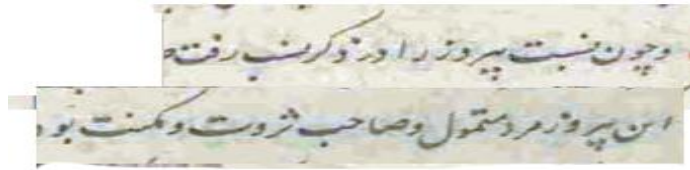 وچون نسبت پیروز را در ذکر نسب رفته
این پیروز مرد متمول وصاحب ثروت و مکنت بود